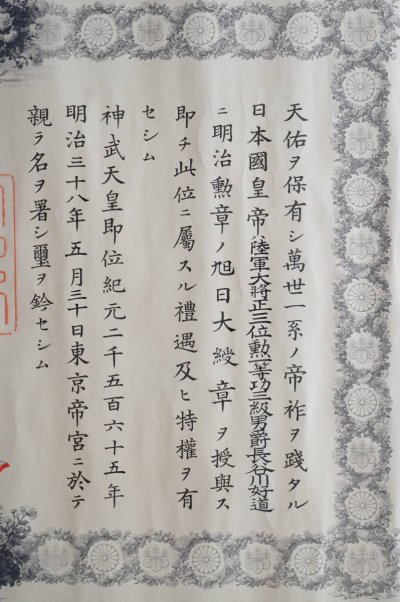 天佑ヲ保有シ萬世一系ノ帝祚ヲ踐タル
日本國皇帝ハ陸軍大將正三位勲一等功三級男爵長谷川好道
ニ明治勲章ノ旭日大綬章ヲ授與ス
即チ此位ニ屬スル禮遇及ヒ特權ヲ有
セシム
神武天皇即位紀元二千五百六十五年
明治三十八年五月三十日東京帝宮ニ於テ
親ラ名ヲ署シ璽ヲ鈐セシム